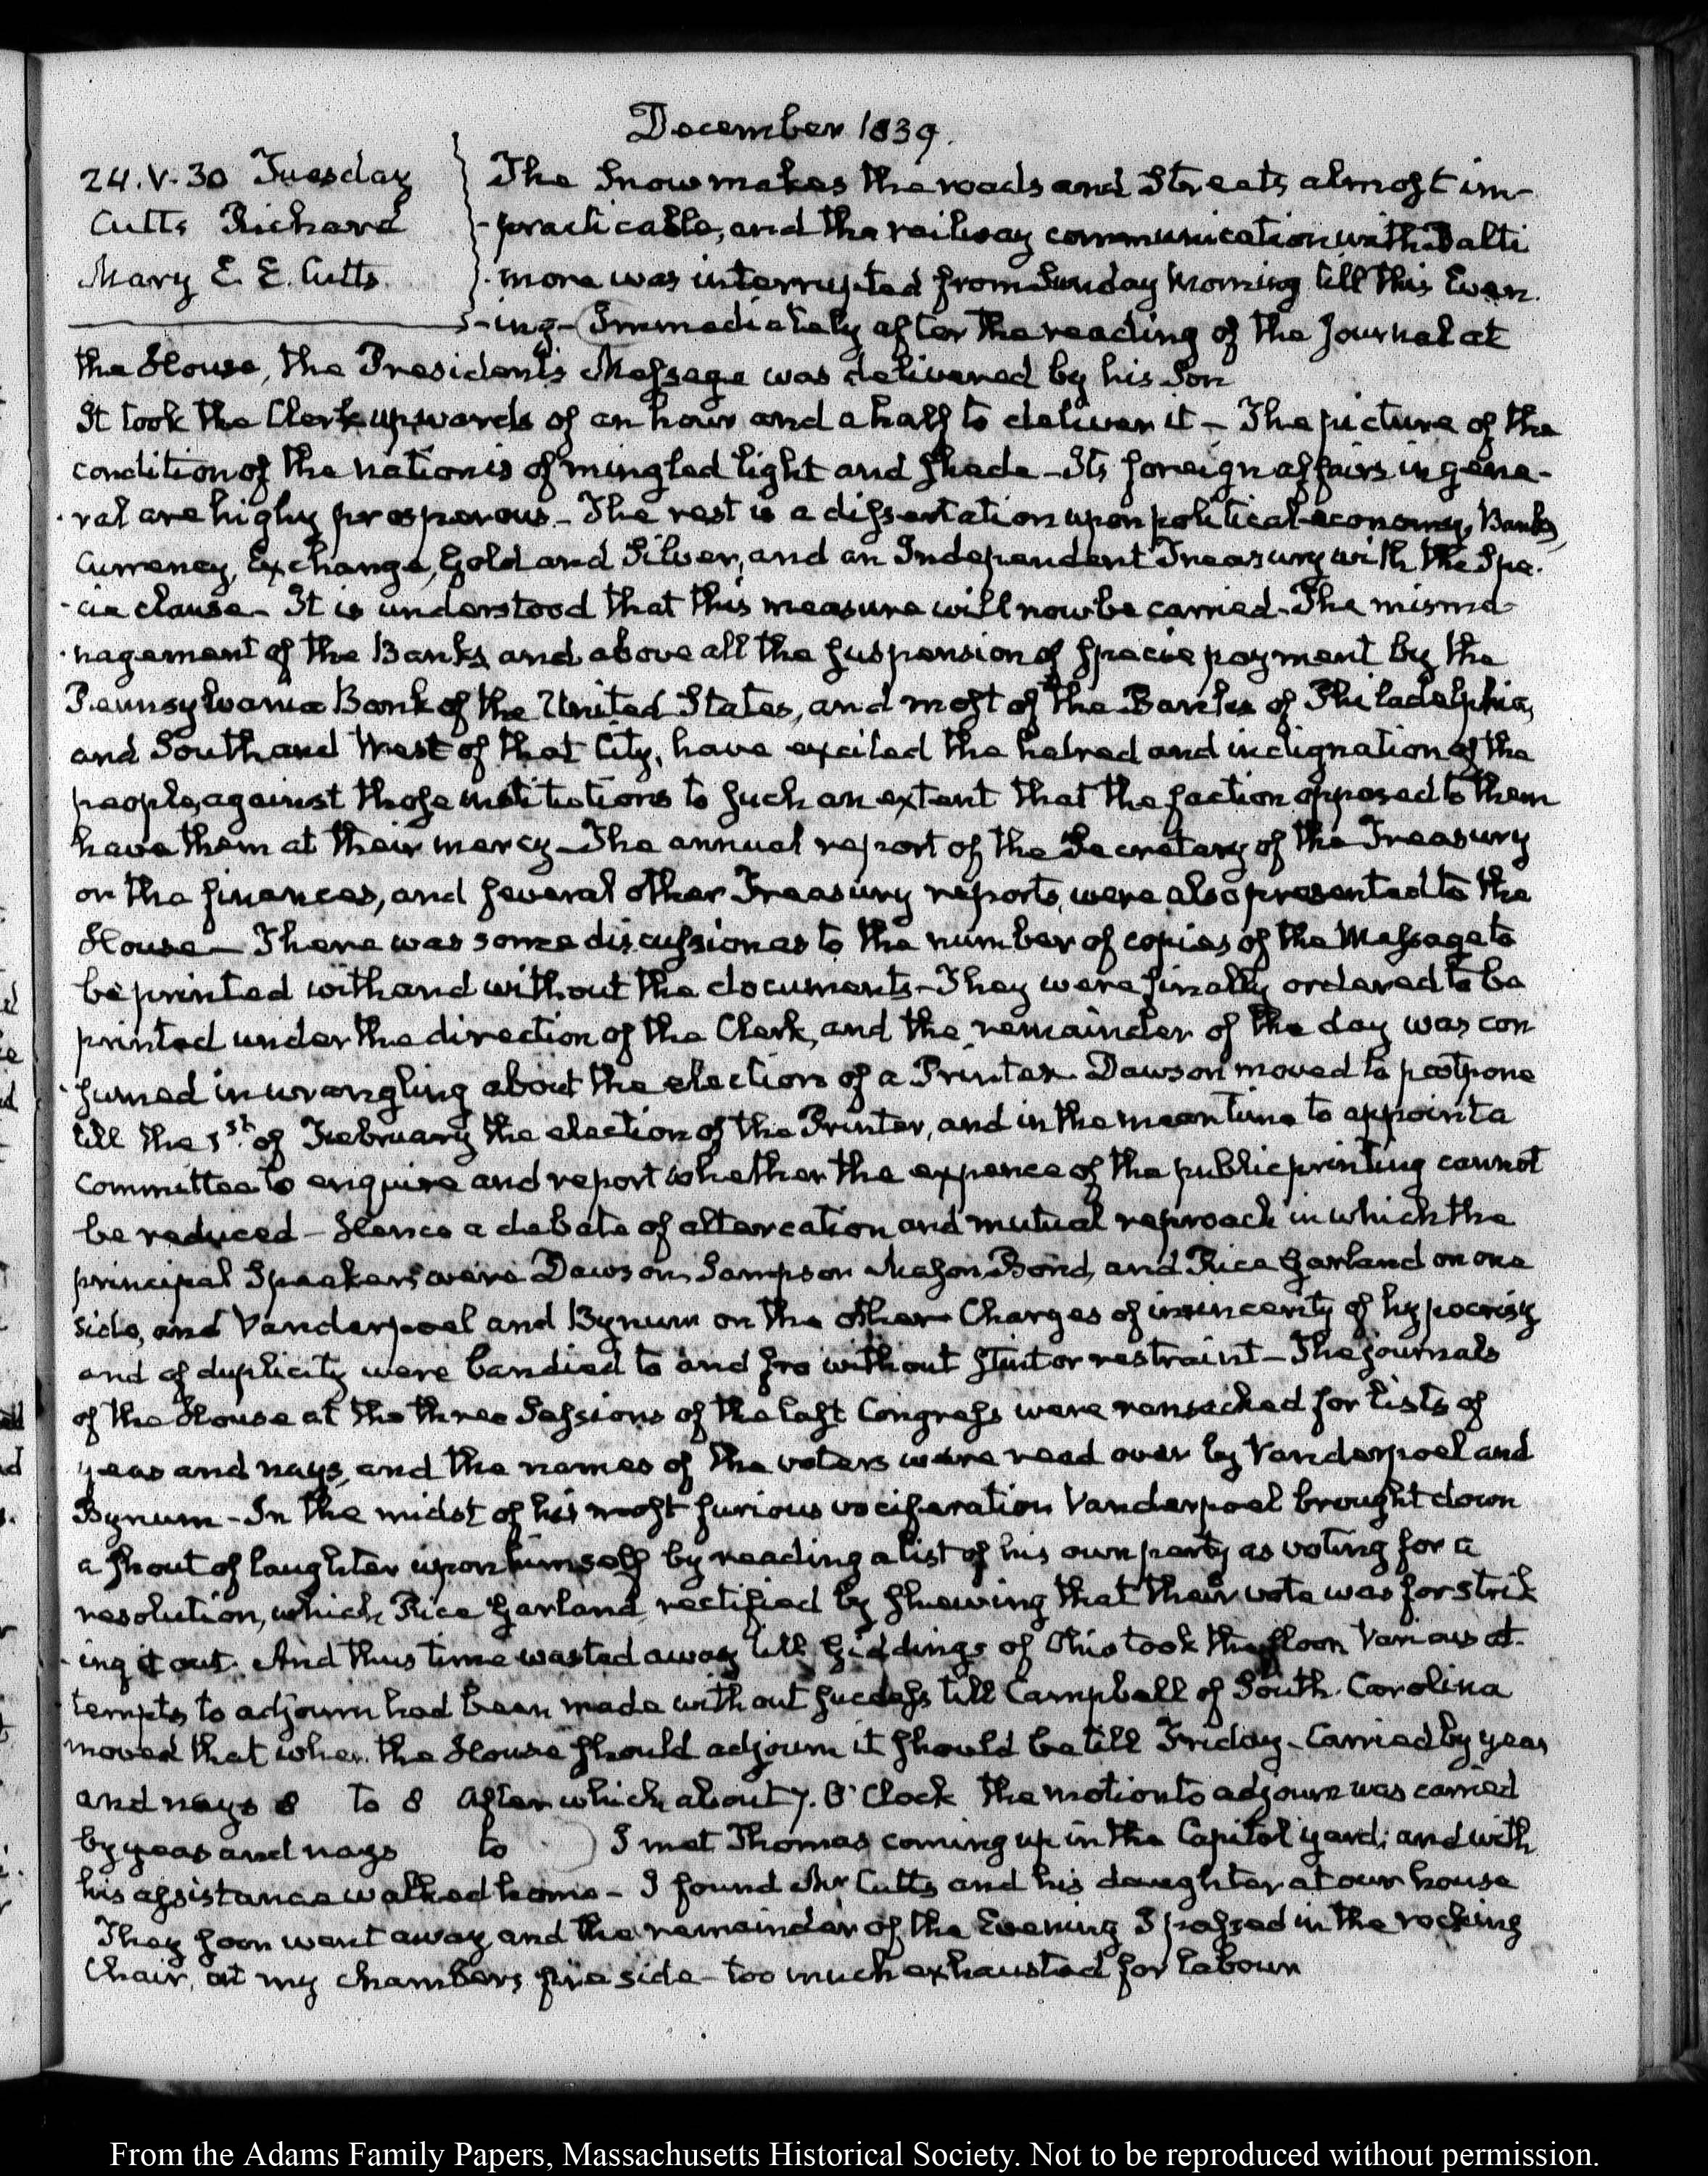 December 1839.
24. V. 30 Tuesday
Cutts Richard
Mary E. E. Cutts.
The Snow makes the roads and Streets almost im-
-practicable, and the railway communication with Balti
-more was interrupted from Sunday Morning till this Even.
-ing- Immediately after the reading of the Journal at
the House, the President's Message was delivered by his Son
It took the Clerk upwards of an hour and a half to deliver it – The picture of the
condition of the nation is of mingled light and shade – Its foreign affairs in gene-
-ral are highly prosperous – The rest is a dissertation upon political economy, Banks,
Currency, Exchange, Gold and Silver, and an Independent Treasury with the Spe-
-cie clause – It is understood that this measure will now be carried. The misma-
-nagement of the Banks, and above all the suspension of specie payment by the
Pennsylvania Bank of the United States, and most of the Banks of Philadelphia,
and South and West of that City, have excited the hatred and indignation of the
people, against those institutions to such an extent that the faction opposed to them
have them at their mercy – The annual report of the Secretary of the Treasury
on the finances, and several other Treasury reports, were also presented to the
House – There was some discussion as to the number of copies of the Message to
be printed with and without the documents – They were finally ordered to be
printed under the direction of the Clerk, and the remainder of the day was con
-sumed in wrangling about the election of a Printer. Dawson moved to postpone
till the 1st. of February the election of the Printer, and in the mean time to appoint a
Committee to enquire and report whether the expence of the public printing cannot
be reduced – Hence a debate of altercation and mutual reproach in which the
principal Speakers were Dawson, Sampson Mason, Bond, and Rice Garland on one
side, and Vanderpoel and Bynum on the other. Charges of insincerity of hypocrisy
and of duplicity were bandied to and fro without stint or restraint – The journals
of the House at the three Sessions of the last Congress were ransacked for lists of
yeas and nays, and the names of the voters were read over by Vanderpoel and
Bynum – In the midst of his most furious vociferation Vanderpoel brought down
a shout of laughter upon himself by reading a list of his own party as voting for a
resolution, which Rice Garland rectified by shewing that their vote was for strik
-ing it out. And thus time wasted away till Giddings of Ohio took the floor Various at-
tempts to adjourn had been made without success till Campbell of South Carolina
moved that when the House should adjourn it should be till Friday – Carried by yeas
and nays 8 to 8 After which about 7. O'Clock the motion to adjourn was carried
by yeas and nays to ) I met Thomas coming up in the Capitol yard; and with
his assistance walked home – I found Mr Cutts and his daughter at our house
They soon went away and the remainder of the Evening I passed in the rocking
Chair, at my chambers fire side – too much exhausted for labour
From the Adams Family Papers, Massachusetts Historical Society. Not to be reproduced without permission.